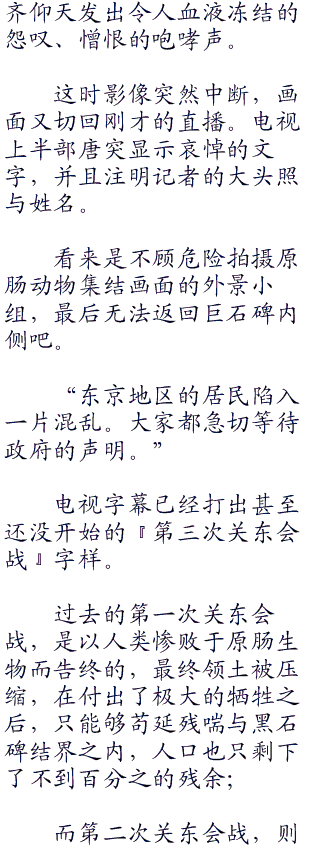 齐仰天发出令人血液冻结的
怨叹、憎恨的咆哮声。
这时影像突然中断，画
面又切回刚才的直播。电视
上半部唐突显示哀悼的文
字，并且注明记者的大头照
与姓名。
看来是不顾危险拍摄原
肠动物集结画面的外景小
组，最后无法返回巨石碑内
侧吧。
“东京地区的居民陷入
一片混乱。大家都急切等待
政府的声明。”
电视字幕已经打出甚至
还没开始的『第三次关东会
战』字样。
过去的第一次关东会
战，是以人类惨败于原肠生
物而告终的，最终领土被压
缩，在付出了极大的牺牲之
后，只能够苟延残喘与黑石
碑结界之内，人口也只剩下
了不到百分之的残余；
而第二次关东会战，则